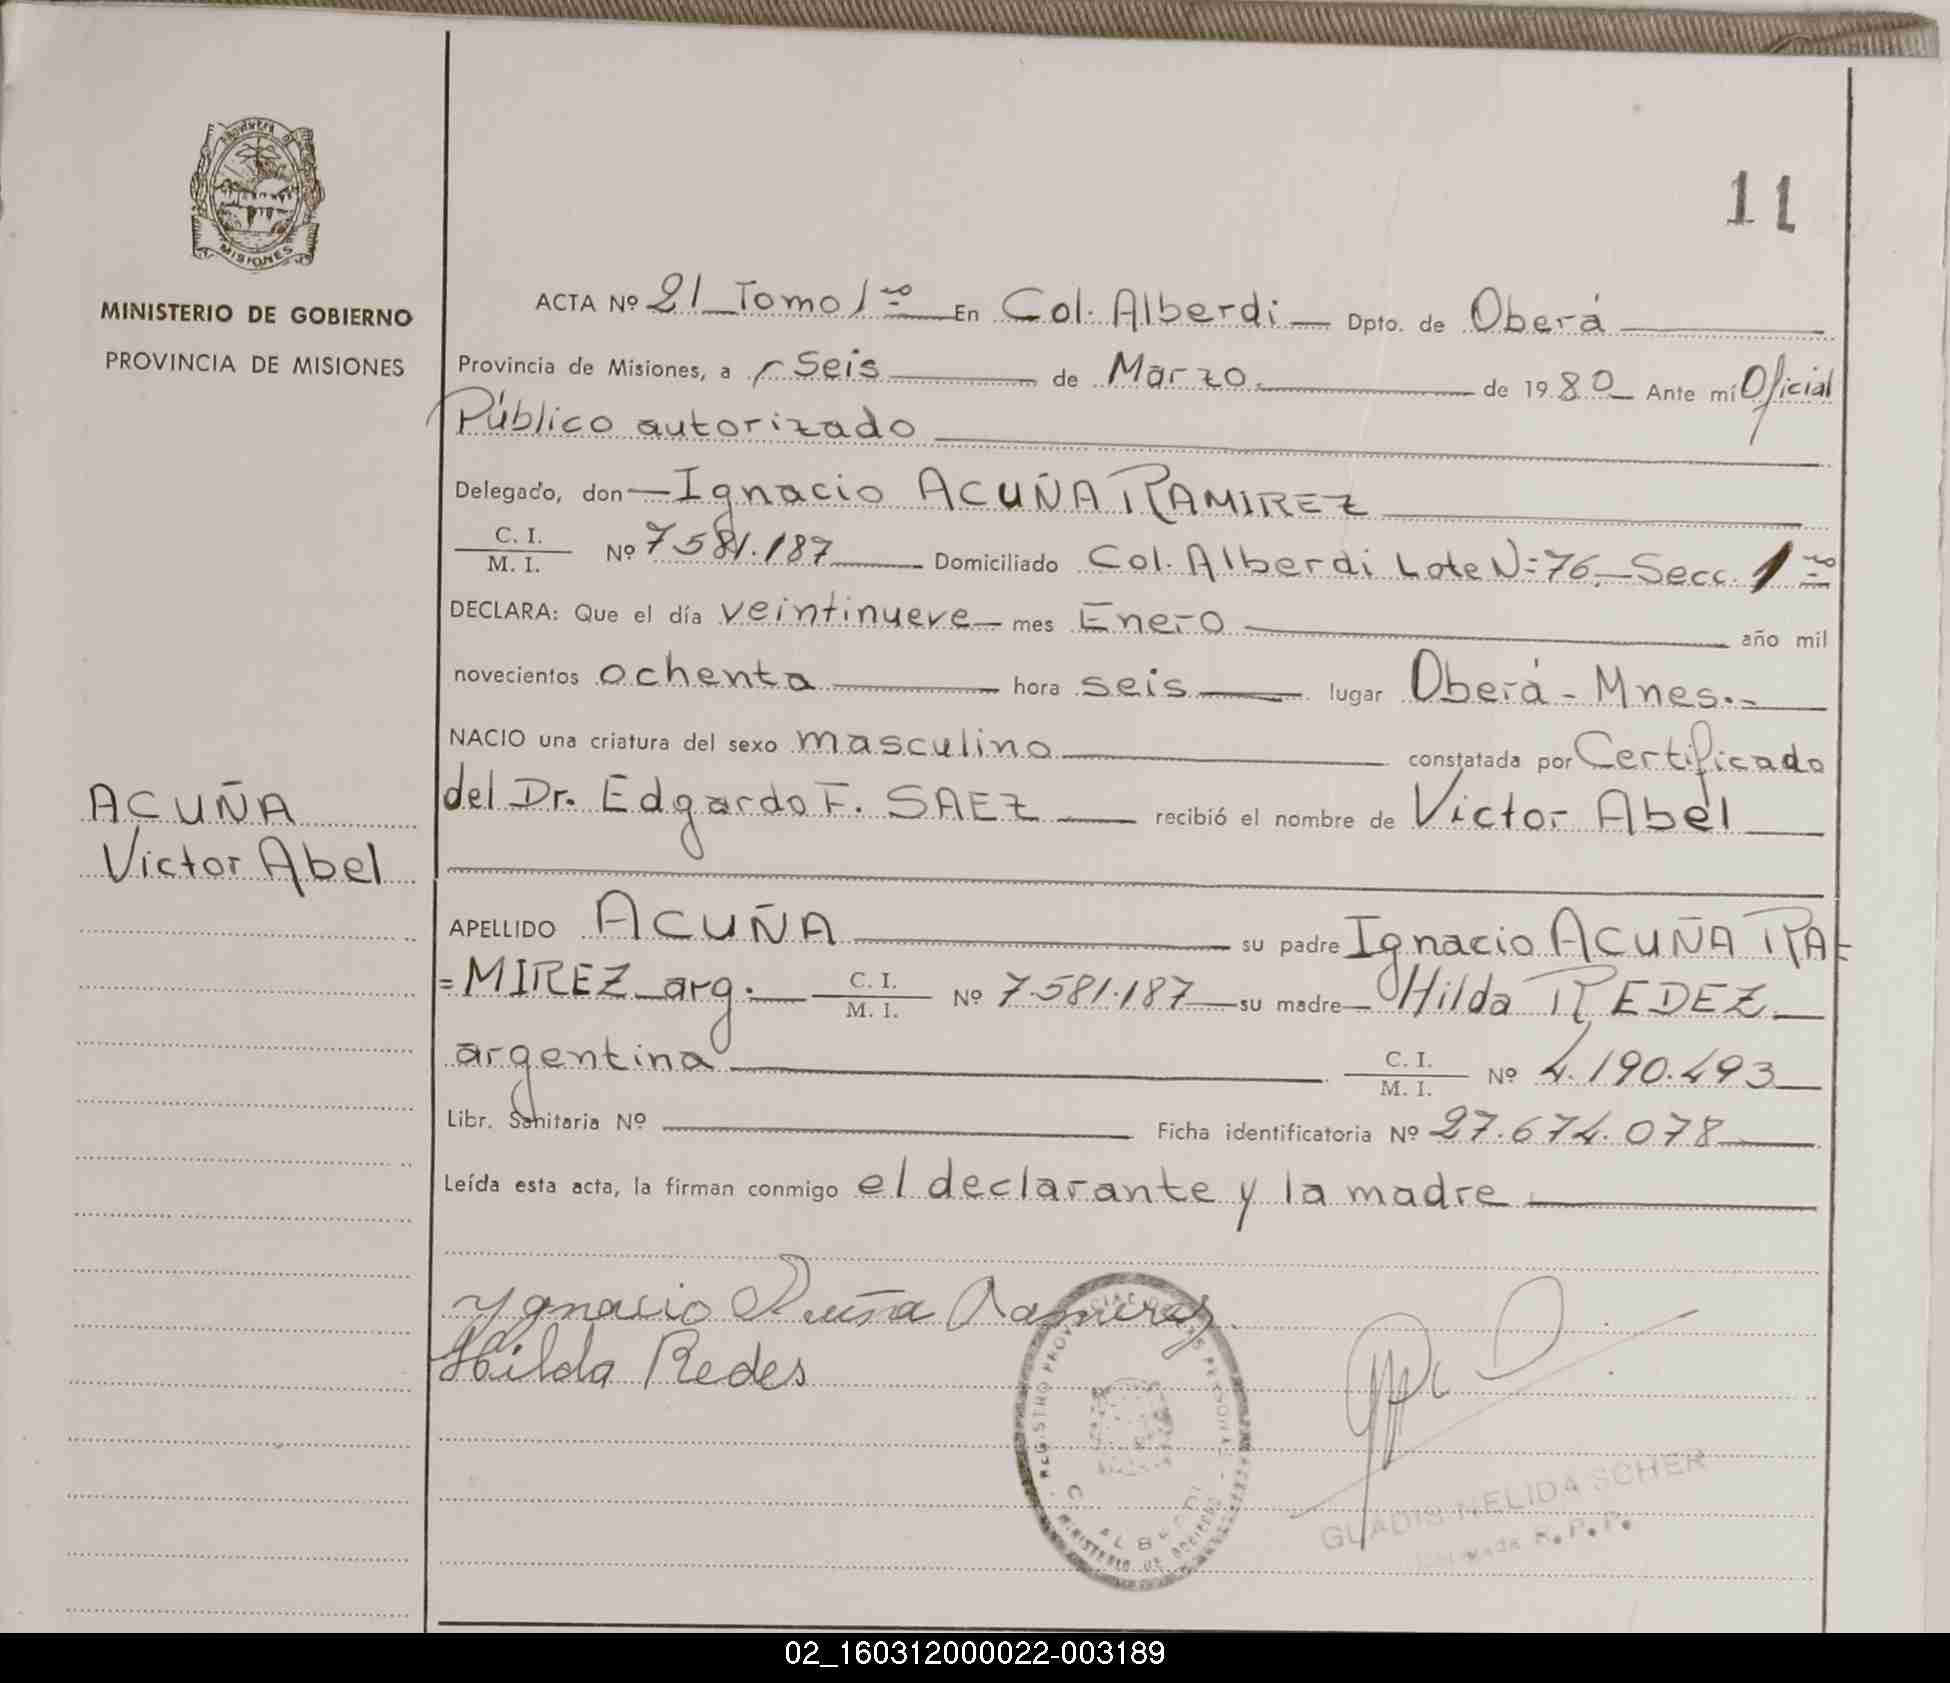 11
MISIONES
MINISTERIO DE GOBIERNO
PROVINCIA DE MISIONES
ACUÑA
Victor Abel
ACTA Nº 21 Tomo 1ro En Col. Alberdi Dpto. de Oberá
Provincia de Misiones, a Seis de Marzo de 1980 Ante mí Oficial
Público autorizado
Delegado, don Ignacio ACUÑA RAMIREZ
C. I. / M. I. Nº 7581.187 Domiciliado Col. Alberdi Lote N: 76 Secc. 1ra
DECLARA: Que el día veintinueve mes Enero año mil
novecientos ochenta hora seis lugar Oberá - Mnes.-
NACIO una criatura del sexo masculino constatada por Certificado
del Dr. Edgardo F. SAEZ recibió el nombre de Victor Abel
APELLIDO ACUÑA su padre Ignacio ACUÑA RA=
=MIREZ arg. C. I. / M. I. Nº 7.581.187 su madre Hilda REDEZ
argentina C. I. / M. I. Nº 4.190.493
Libr. Sanitaria Nº Ficha identificatoria Nº 27.674.078
Leída esta acta, la firman conmigo el declarante y la madre
Ygnacio Acuña Ramirez
Hilda Redes
REGISTRO PROVINCIAL DE LAS PERSONAS
MINISTERIO DE GOBIERNO
GLADIS NELIDA SCHER
R.P.P.
02_160312000022-003189